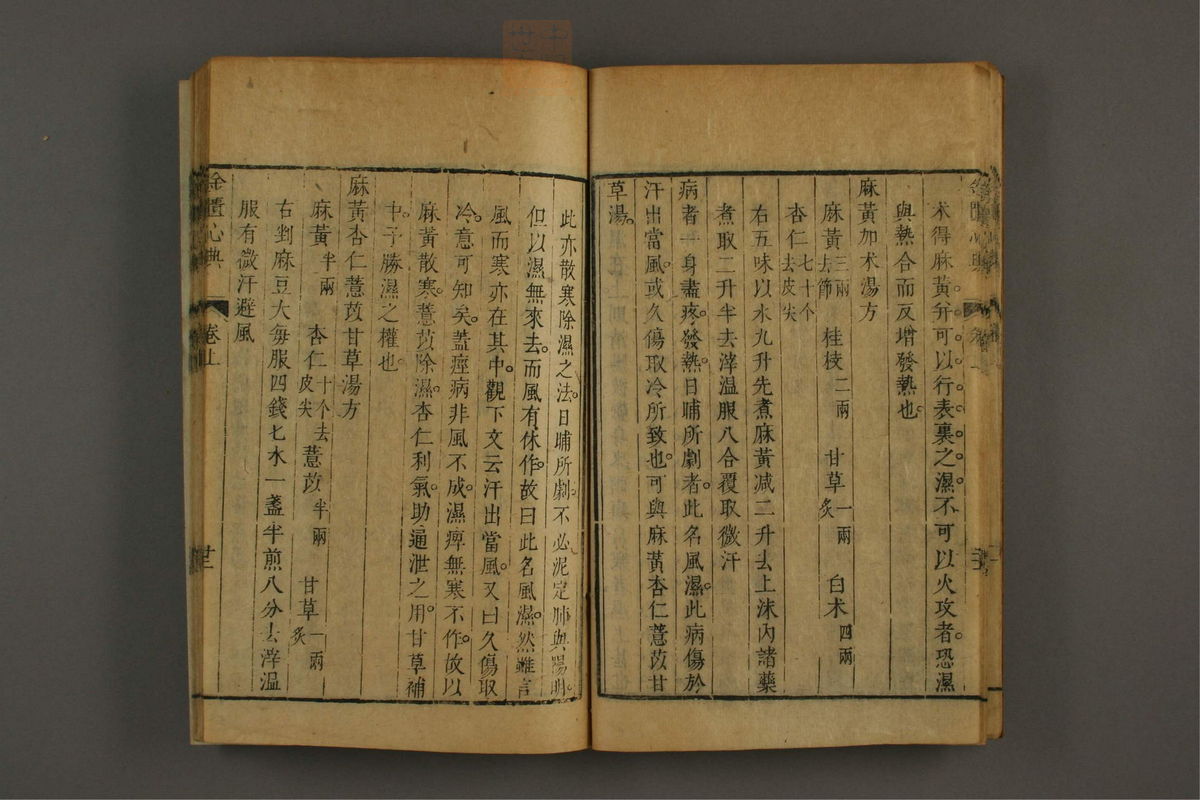 术得麻黃并可以行表裏之濕不可以火攻者恐濕
與熱合而反增發熱也
麻黃加术湯方
麻黃三兩去節 桂枝二兩 甘草一兩炙 白术四兩
杏仁七十个去皮尖
右五味以水九升先煮麻黃减二升去上沫內諸藥
煮取二升半去滓温服八合覆取微汗
病者一身盡疼發熱日晡所劇者此名風濕此病傷於
汗出當風或久傷取冷所致也可與麻黃杏仁薏苡甘
草湯
此亦散寒除濕之法日晡所劇不必泥定肺與陽明
但以濕無來去而風有休作故曰此名風濕然雖言
風而寒亦在其中觀下文云汗出當風又曰久傷取
冷意可知矣葢痙病非風不成濕痺無寒不作故以
麻黃散寒薏苡除濕杏仁利氣助通泄之用甘草補
中予勝濕之權也
麻黃杏仁薏苡甘草湯方
麻黃半兩 杏仁十个去皮尖 薏苡半兩 甘草一兩炙
右剉麻豆大每服四錢匕水一盞半煎八分去滓温
服有微汗避風
金匱心典 卷上 廿